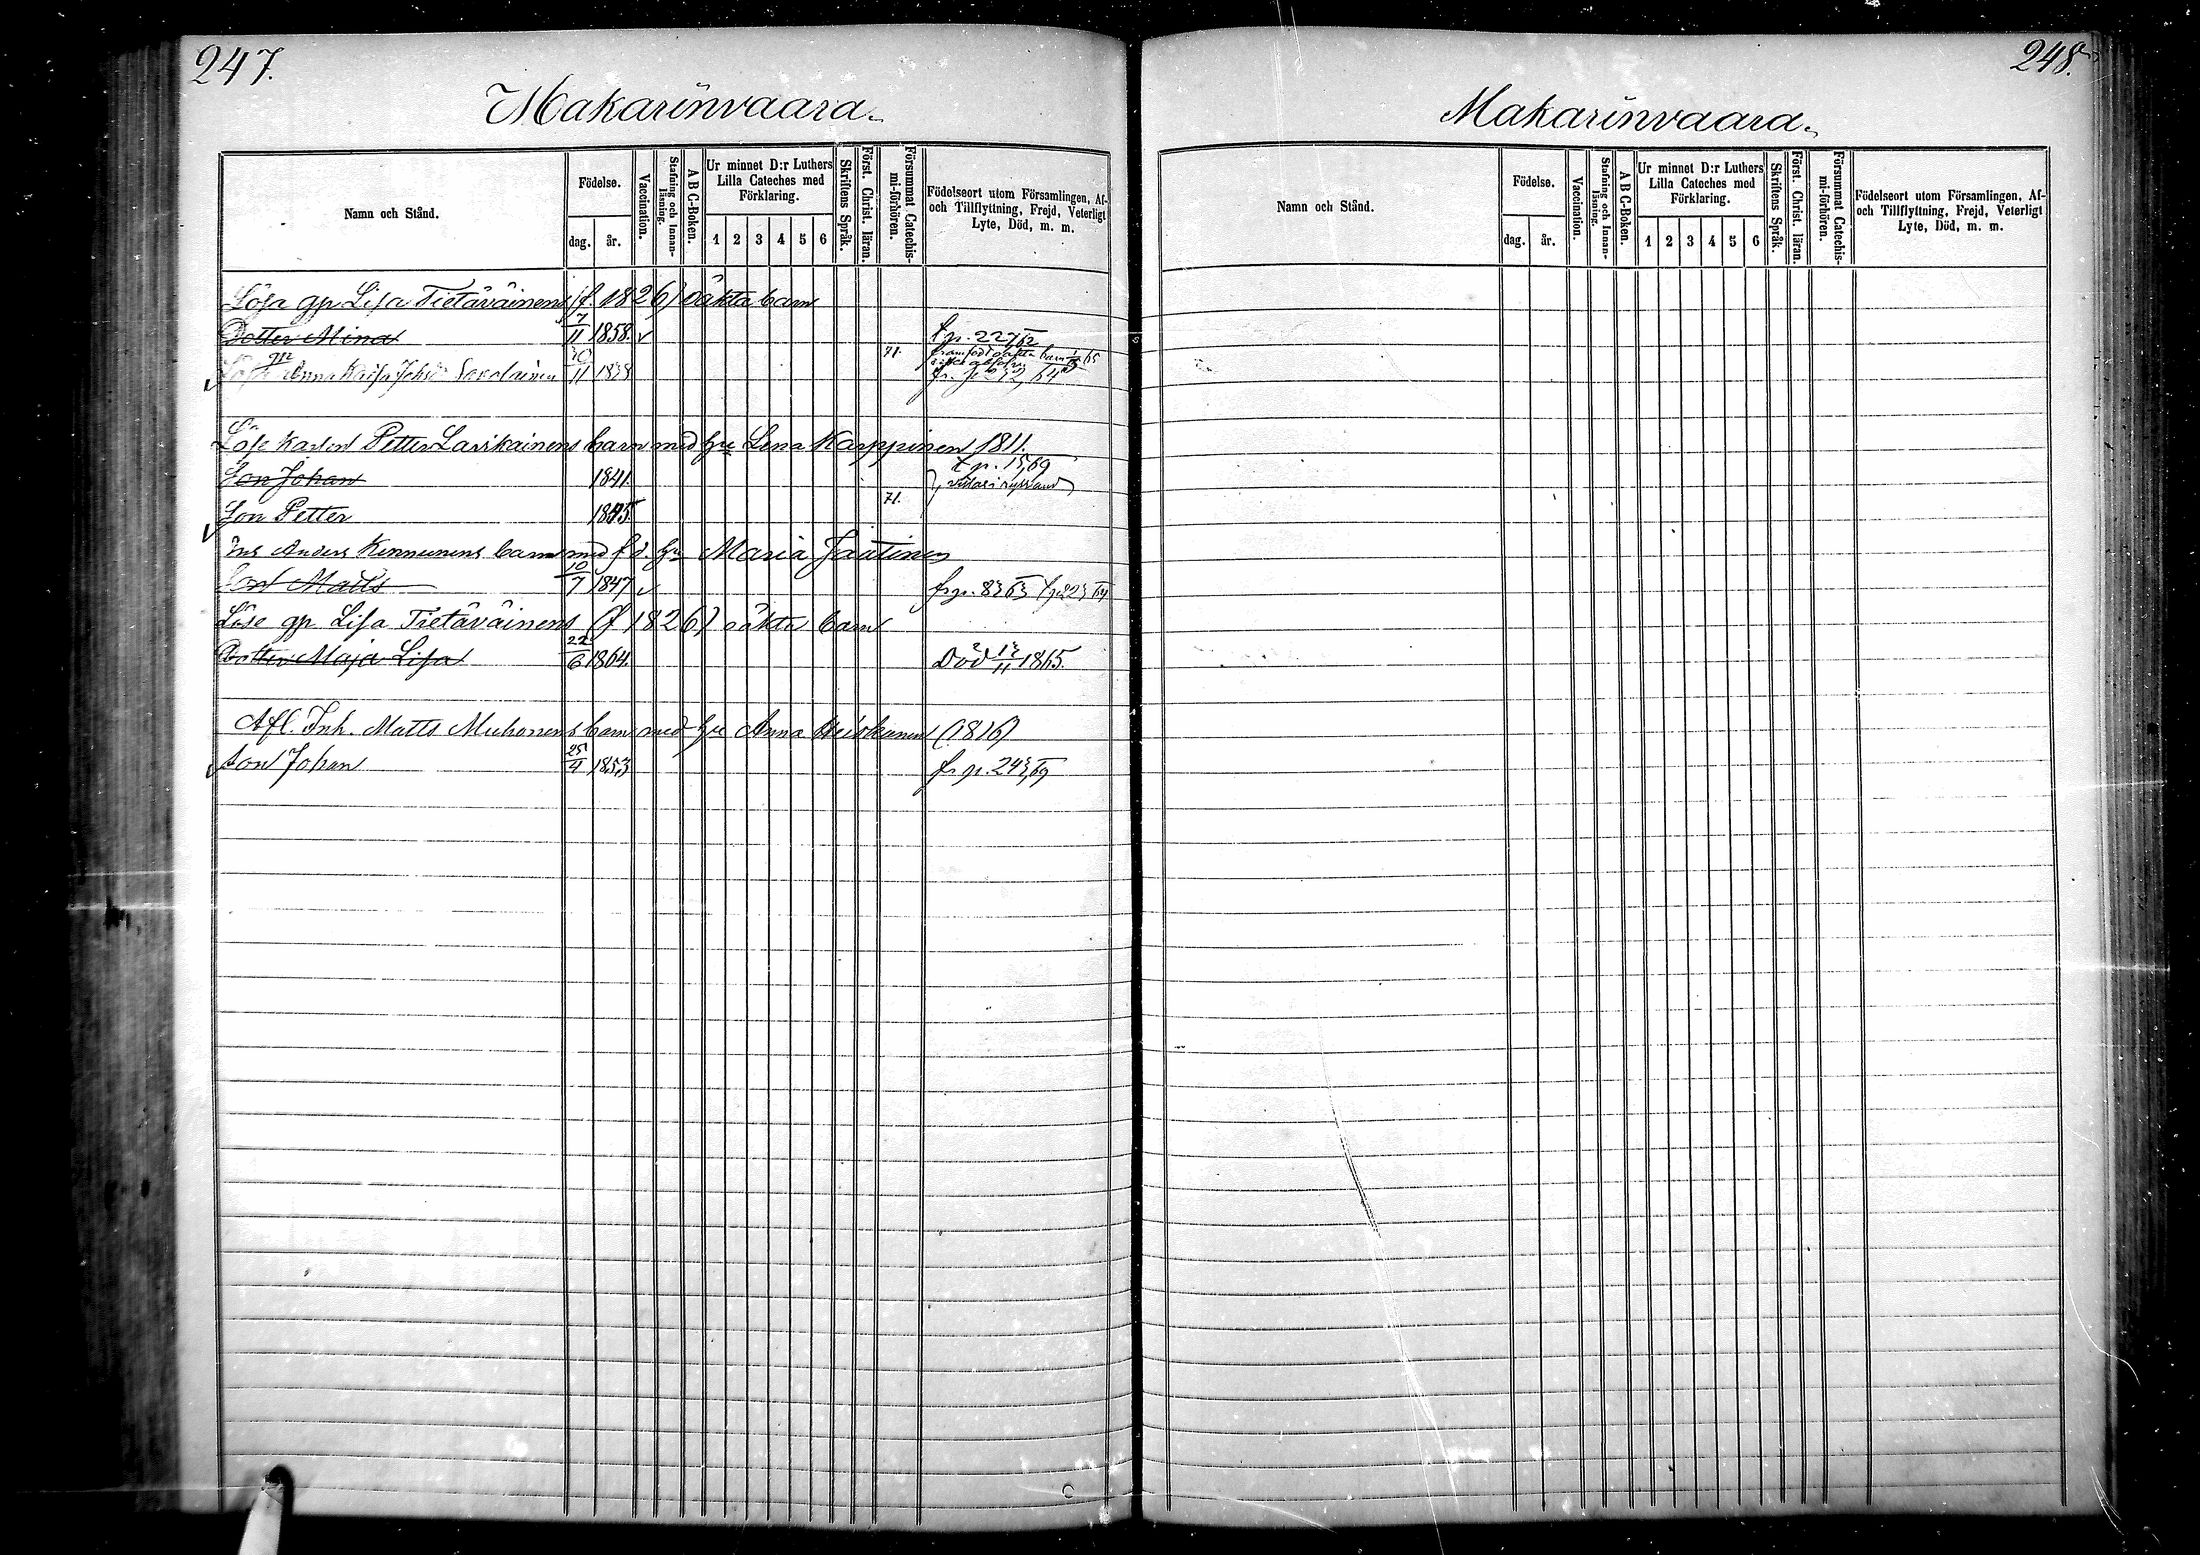 247.
Makarinvaara.
Namn och Stånd.
Födelse.
dag.
år.
Vaccination.
Stafning och Innan-
läsning.
A B C-Boken.
Ur minnet D:r Luthers
Lilla Cateches med
Förklaring.
1 2 3 4 5 6
Skriftens Språk.
Först. Christ. läran.
Försummat Catechis-
mi-förhören.
Födelseort utom Församlingen, Af-
och Tillflyttning, Frejd, Veterligt
Lyte, Död, m. m.
Lösa gp. Lisa Tietäväinens (f. 1826) oäkta barn
Dotter Mina 7/11 1858. t p. 227/62
71. framfödt oäkta barn
Anna Kaisa Savolainen 11 1838 fr. p. 64
Petter Lavikainens barn med hu Lena Karppinen 1811.
Son Johan 1841. t p. 15,69
Son Petter 1845. 71.
Inh Anders Kinnunens barn med f. d. hu Maria Jautinen
Son Matts 10/7 1847 fr p. 83/63
Löse gp. Lisa Tietäväinens (f 1826) oäkta barn
Dotter Maja Lisa 22/6 1864. Död 12/11 1865.
Afl. Inh. Matts Muhonens barn med hu Anna Heiskanen (1816)
Son Johan 25/4 1853 fr p. 243,69
248.
Makarinvaara.
Namn och Stånd.
Födelse.
dag.
år.
Vaccination.
Stafning och Innan-
läsning.
A B C-Boken.
Ur minnet D:r Luthers
Lilla Cateches med
Förklaring.
1 2 3 4 5 6
Skriftens Språk.
Först. Christ. läran.
Försummat Catechis-
mi-förhören.
Födelseort utom Församlingen, Af-
och Tillflyttning, Frejd, Veterligt
Lyte, Död, m. m.